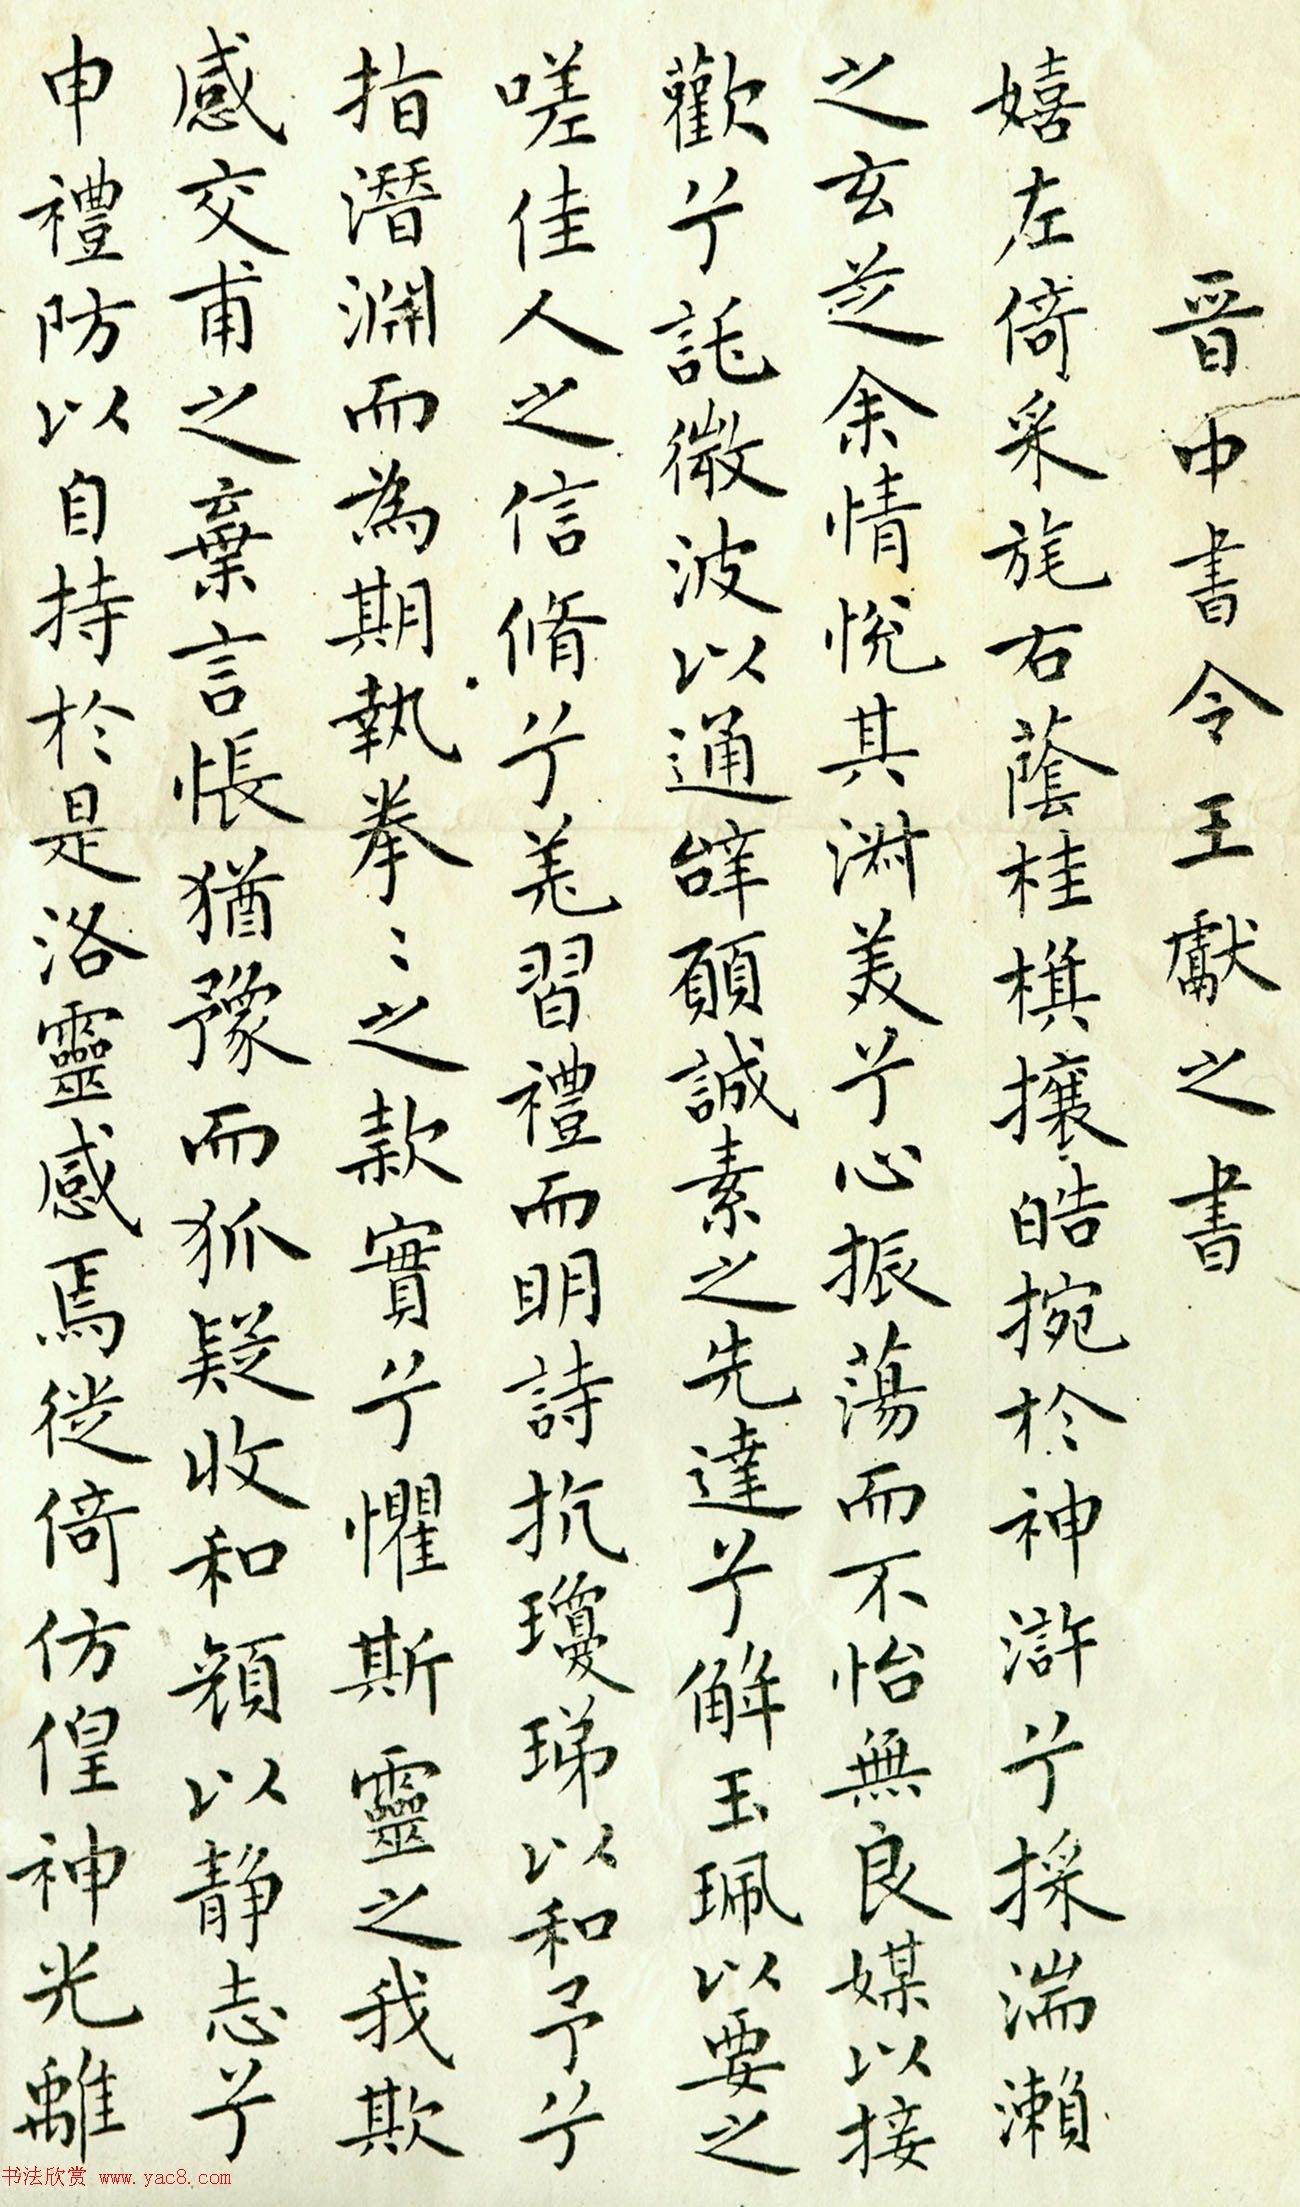 晉中書令王獻之書
嬉左倚采旄右蔭桂棋攘皓捥於神滸兮採湍瀨
之玄芝余情悅其淋美兮心振蕩而不怡無良媒以接
歡兮託微波以通辝願誠素之先達兮解玉珮以要之
嗟佳人之信脩兮羌習禮而明詩抗瓊珶以和予兮
指潛淵而為期執拳〻之款實兮懼斯靈之我欺
感交甫之棄言悵猶豫而狐疑收和顏以静志兮
申禮防以自持於是洛靈感焉徙倚仿偟神光離
书法欣赏 www.yac8.com